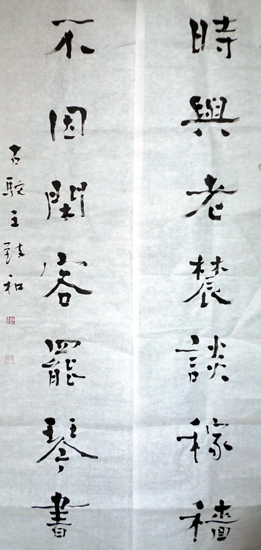 時與老農談稼穡
不因閑客罷琴書
古驗王鐘和